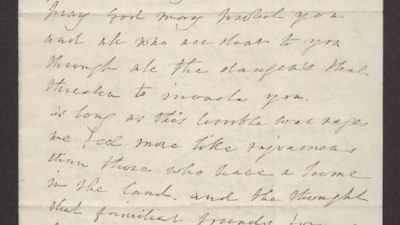 pray God may protect you.
and all who are dear to you
through all the dangers that
threaten to invade you.
as long as this horrible war rages
we feel more like sojourners
than those who have a home
in the land. and the thought
that familiar friends